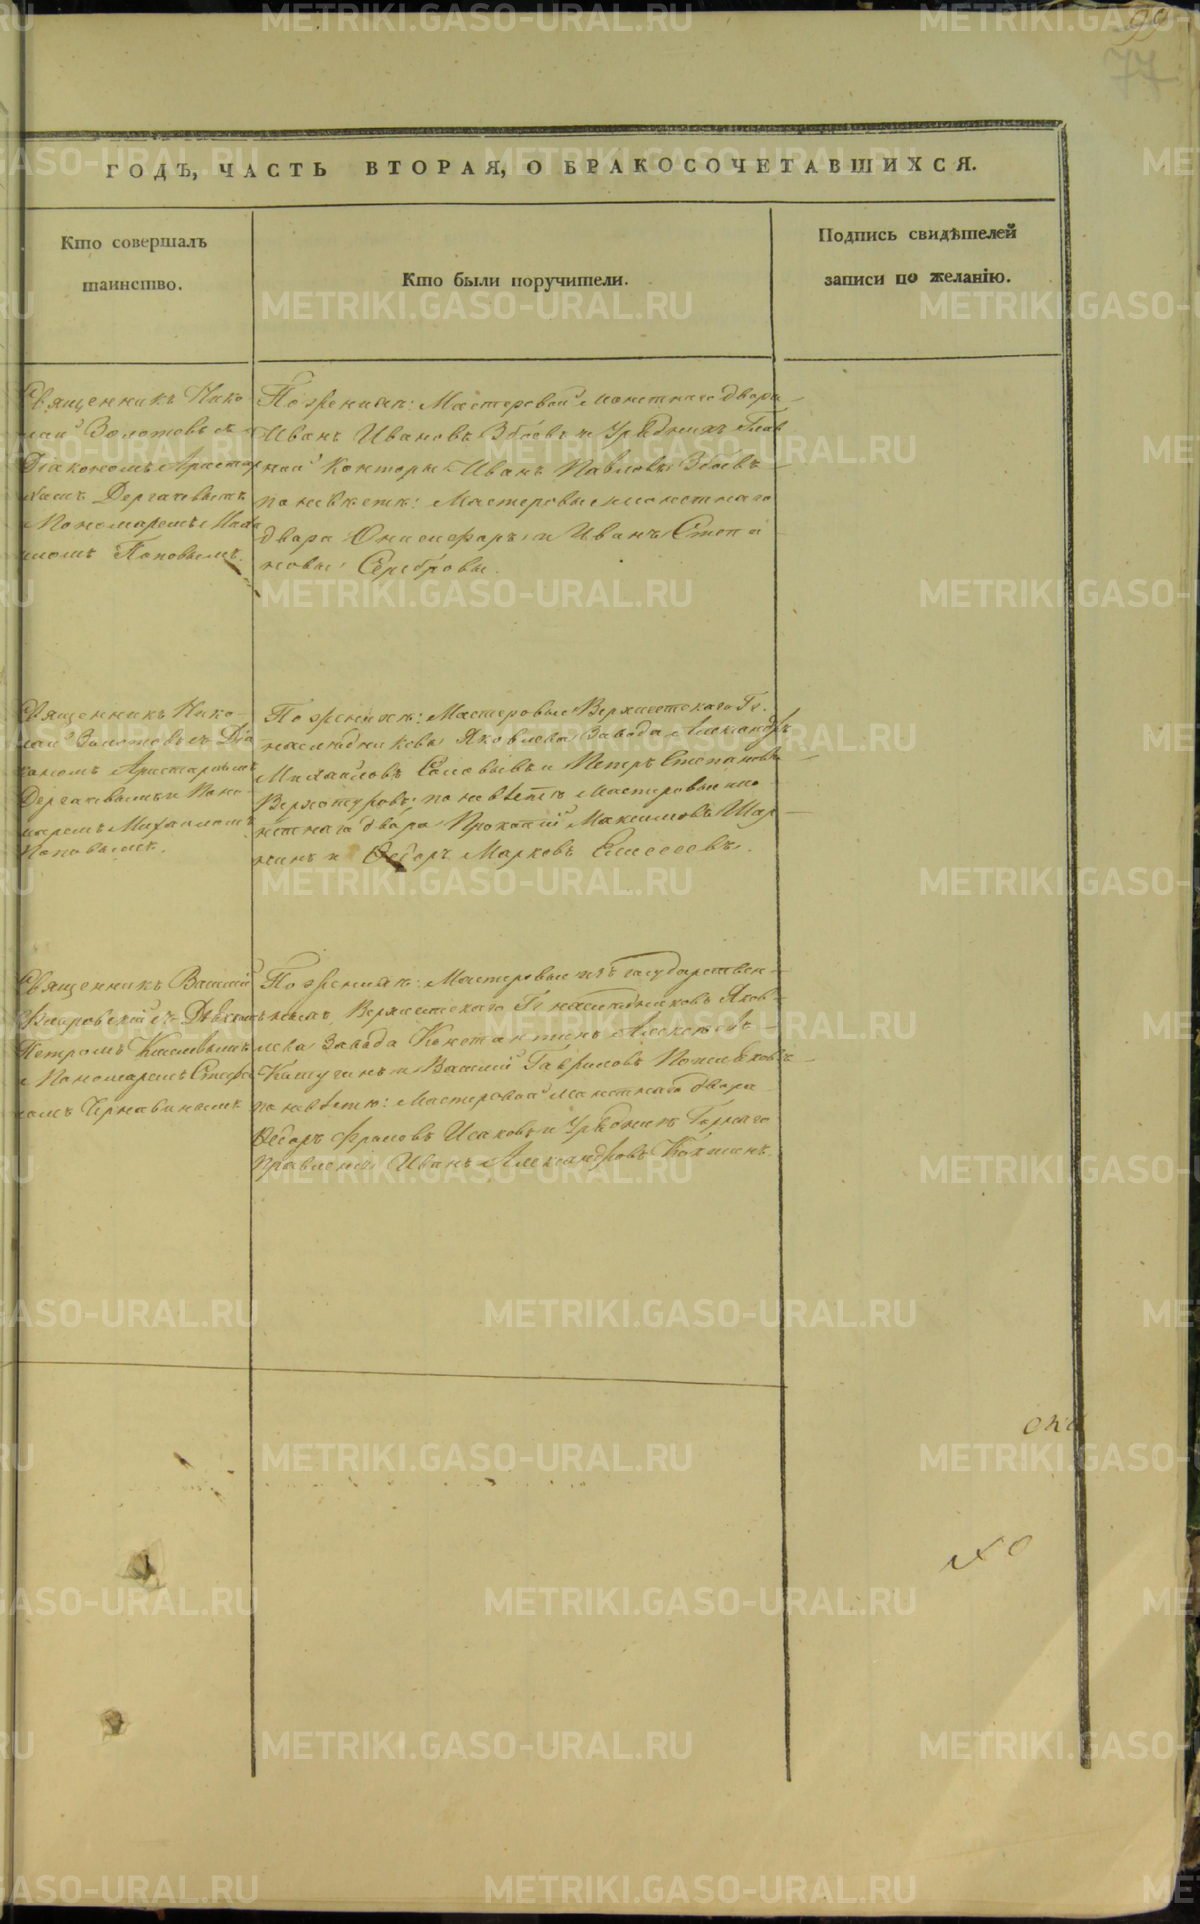 99
77
ГОДЪ, ЧАСТЬ ВТОРАЯ, О БРАКОСОЧЕТАВШИХСЯ.
Кто совершалъ
таинство.
Кто были поручители.
Подпись свидѣтелей
записи по желанію.
Священникъ Нико
лай Золотовъ съ
Діакономъ Аристар
хомъ Дергачевымъ
и Пономаремъ Миха
иломъ Поповымъ.
По женихѣ: Мастеровой монетнаго двора
Иванъ Ивановъ Збоевъ и Урядникъ Глав
ной Конторы Иванъ Павловъ Збоевъ
по невѣстѣ: Мастеровые монетнаго
двора Онисифоръ и Иванъ Степа
новы Серебровы.
Священникъ Нико
лай Золотовъ съ Діа
кономъ Аристархомъ
Дергачевымъ и Поно
маремъ Михаиломъ
Поповымъ.
По женихѣ: Мастеровые Верхисетскаго Гг.
наследниковъ Яковлева Завода Александръ
Михайловъ Соловьевъ и Петръ Степановъ
Верхотуровъ. по невѣстѣ Мастеровые мо
нетнаго двора Прокопій Максимовъ
и Ѳедоръ Марковъ Елисеевъ.
Священникъ Василій
съ Діакономъ
Петромъ
и Пономаремъ Стефа
номъ Чернавинымъ
По женихѣ: Мастеровые изъ государствен
ныхъ Верхисетскаго Гг наследниковъ Яков
лева Завода Константинъ Алексѣевъ
и Василій Гавриловъ
по невѣстѣ: Мастеровой монетнаго двора
Ѳедоръ Фроловъ Исаковъ и Урядникъ Горнаго
Правленія Иванъ Александровъ
METRIKI.GASO-URAL.RU